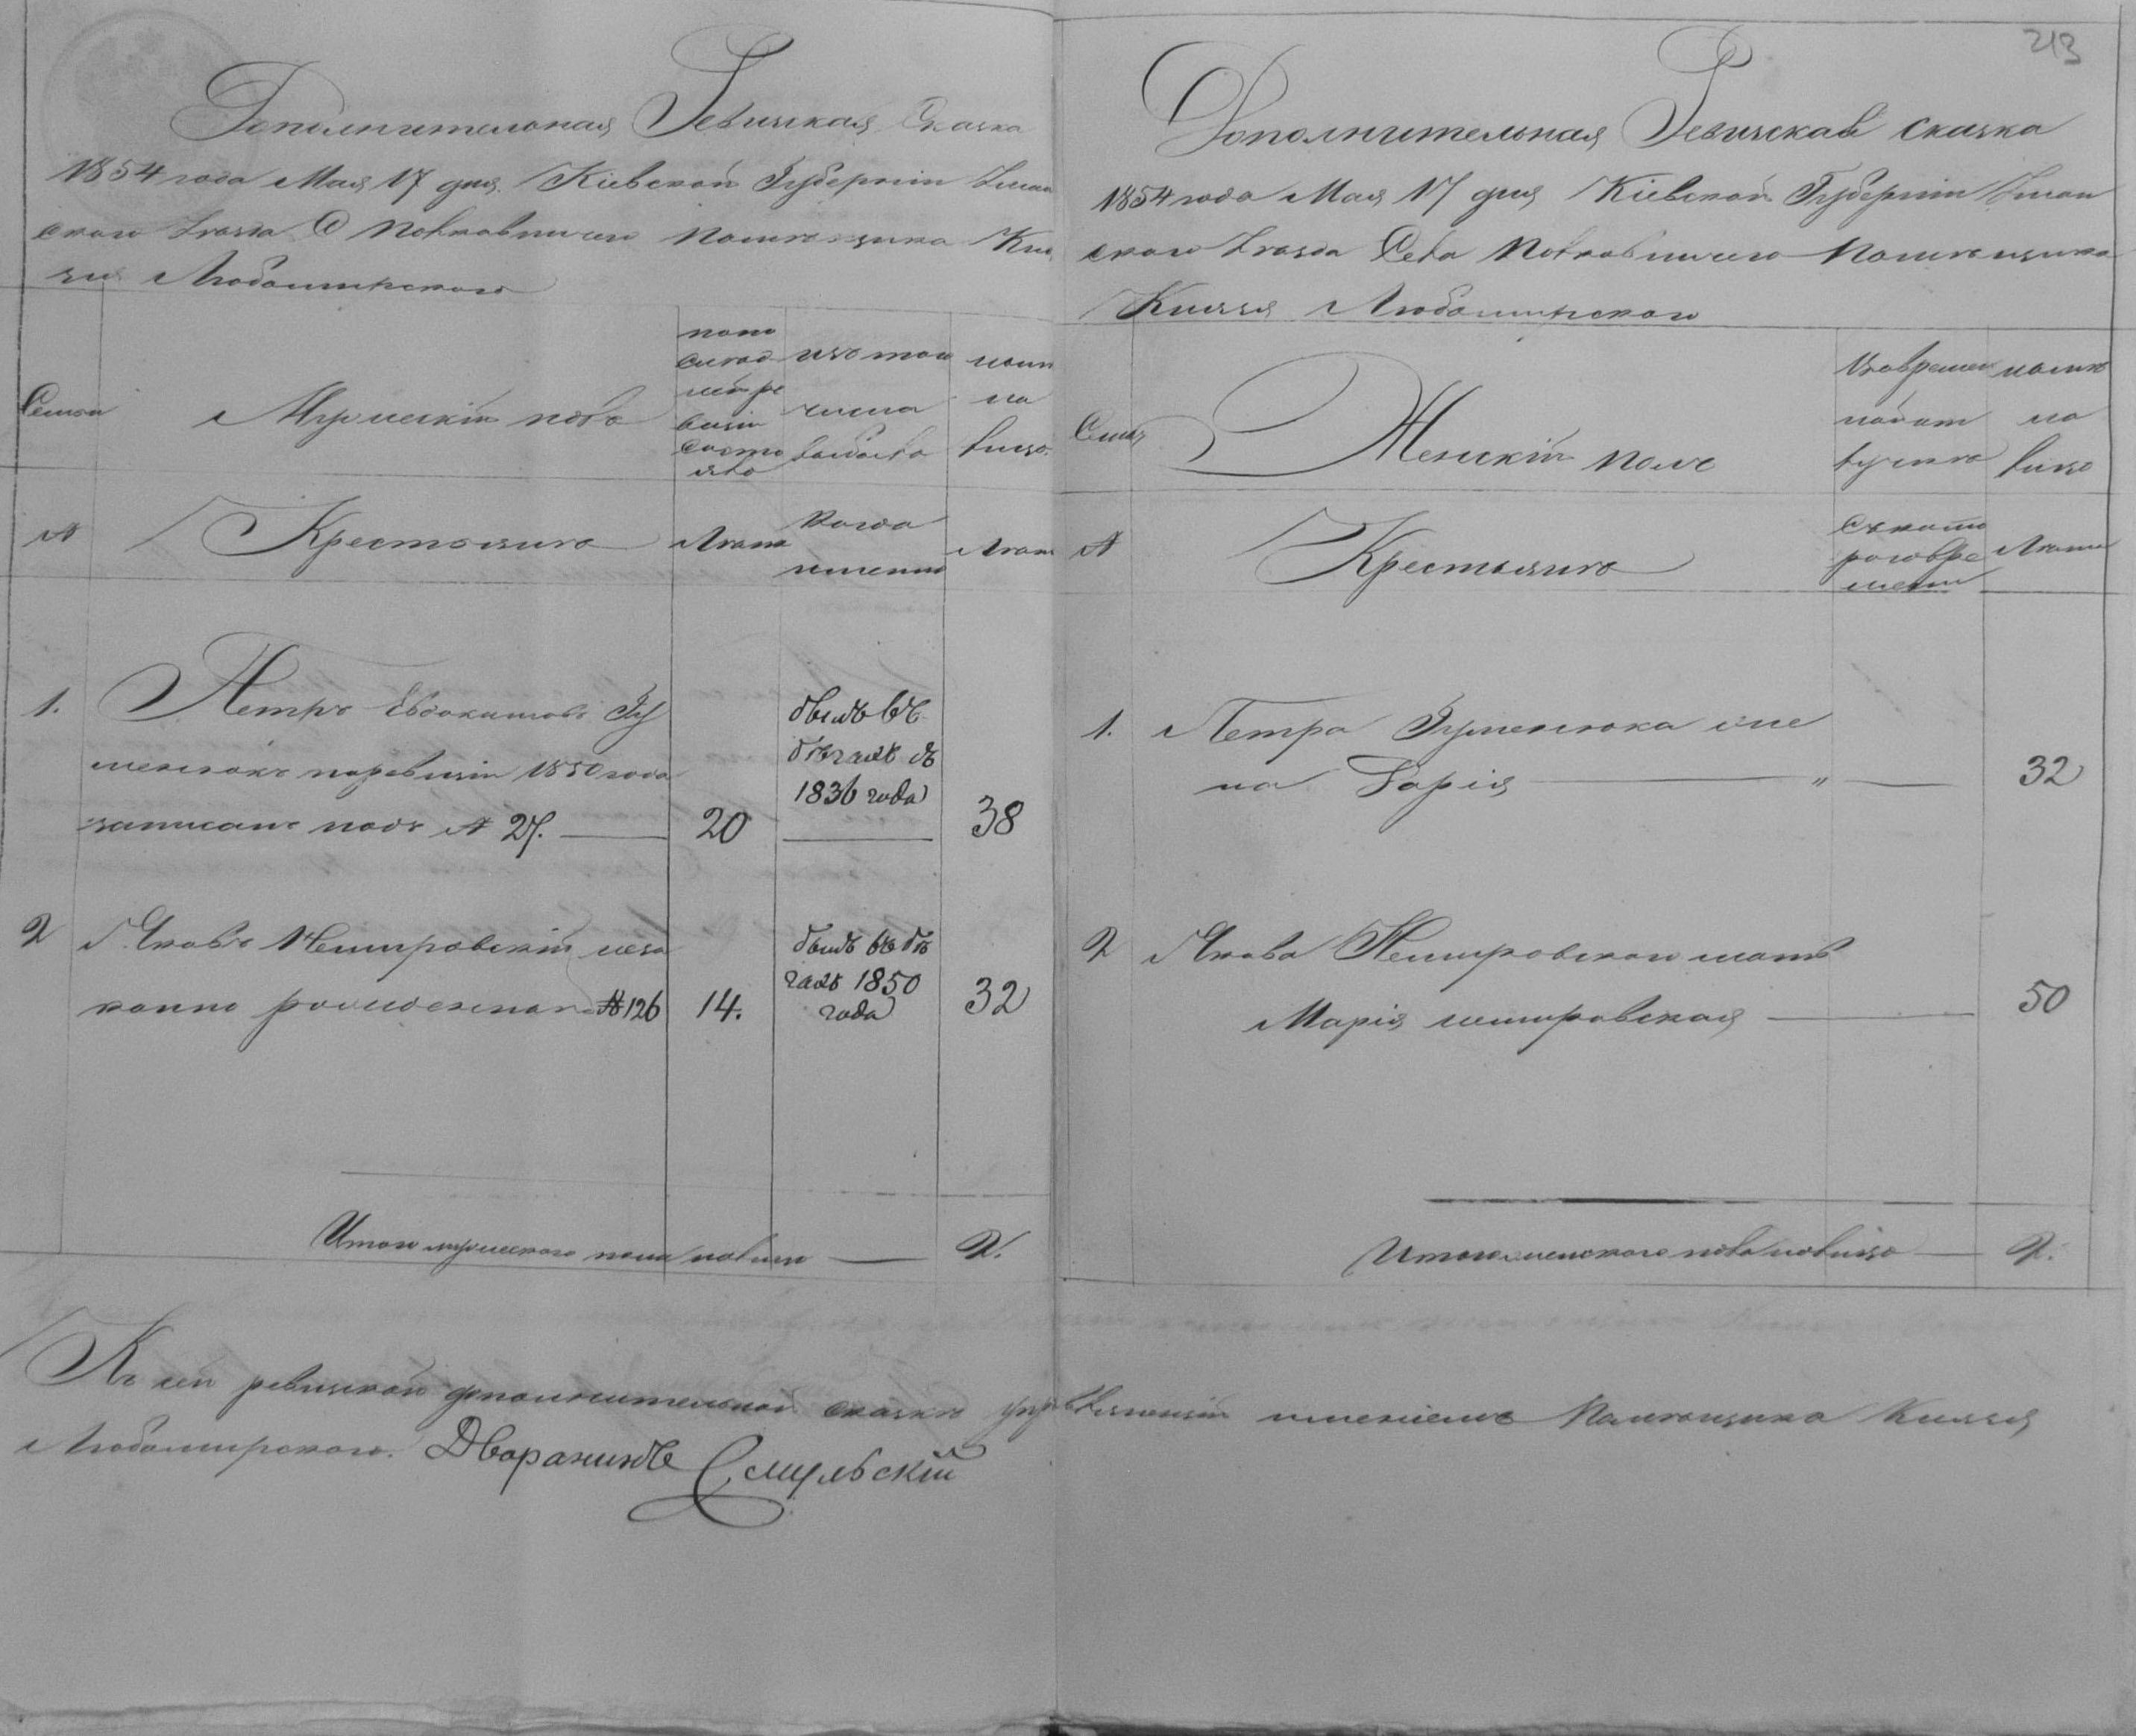 Дополнительная Ревизская Сказка
1854 года Мая 17 дня. Кіевской Губерніи Уман
скаго уезда С Полковничего помещика Кня
зя Любомирскаго
Семьи
Мужескій полъ
по по
следней ре
визіи
состо
яло
изъ того
числа
выбыло
ныне
на
лицо.
№
Крестьяне
Лета
Когда
именно
Лета
1.
Петръ Евдокимовъ Гу
менюкъ по ревизіи 1850 года
записанъ подъ № 27.
20
былъ въ
бегахъ съ
1836 года
38
2
Яковъ Немировскій неза
конно рожденный №126
14.
былъ въ бе
гахъ 1850
года
32
Итого мужескаго пола налицо
2.
213
Дополнительная Ревизская сказка
1854 года Мая 17 дня Кіевской Губерніи Уман
скаго уезда Села Полковничего Помещика
Князя Любомирскаго
Семьи
Женскій полъ
Во времен
ной от
лучке
ныне
на
лицо
№
Крестьяне
Съ кото
раго вре
мени
Лета
1.
Петра Гуменюка же
на Дарія
"
32
2
Якова Немировскаго мать
Марія немировская
50
Итого женскаго пола налицо
2.
Къ сей ревизской дополнительной сказке управляющій именіемъ Помещика Князя
Любомирскаго. Дворянинъ Смульскій